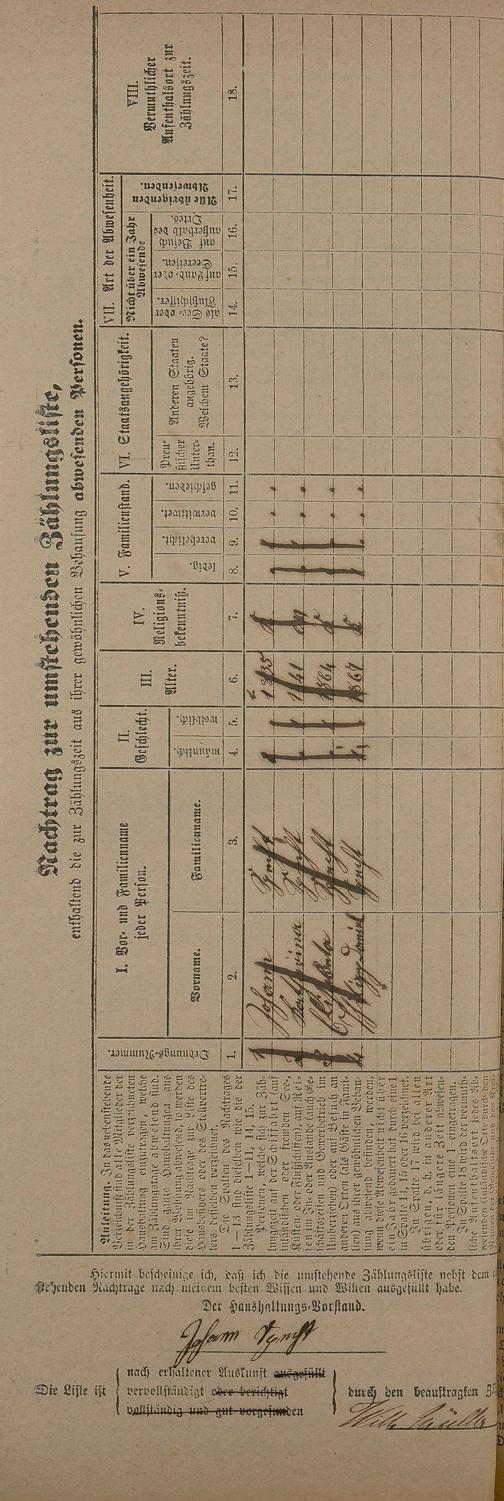 Nachtrag zur umstehenden Zählungsliste,
enthaltend die zur Zählungszeit aus ihrer gewöhnlichen Behausung abwesenden Personen.
Anleitung. In das nebenstehende
Verzeichniß sind alle Mitglieder der
in der Zählungsliste verzeichneten
Haushaltung einzutragen, welche
am Zählungstage abwesend sind.
Sind ganze Haushaltungen aus
ihrer Wohnung abwesend, so werden
diese im Nachtrage zur Liste des
Hausbesitzers oder des Stellvertre-
ters desselben verzeichnet.
Die Spalten des Nachtrages
1—13 sind dieselben wie die der
Zählungsliste 1—11, 14, 15.
Personen, welche sich zur Zäh-
lungszeit auf der Schiffahrt (auf
inländischen oder fremden See-,
Küsten- oder Flußschiffen), auf Rei-
sen im In- oder Auslande (auch Ge-
schäftsreisen und Gewerbebetrieb im
Umherziehen) oder auf Besuch an
anderen Orten (als Gäste in Fami-
lien) aus ihrer gewöhnlichen Behau-
sung abwesend befinden, werden,
wenn diese Abwesenheit nicht über
ein Jahr gedauert hat, durch eine 1
in Spalte 14, 15 oder 16 verzeichnet.
In Spalte 17 wird bei allen
übrigen, d. h. in anderer Art
oder für längere Zeit abwesen-
den Personen eine 1 eingetragen.
In Spalte 18 wird der vermuth-
liche Aufenthaltsort
Ordnungs-Nummer.
I. Vor- und Familienname
jeder Person.
Vorname.
Familienname.
II.
Geschlecht.
männlich.
weiblich.
III.
Alter.
IV.
Religions-
bekenntniß.
V. Familienstand.
ledig.
verehelicht.
verwittwet.
geschieden.
VI. Staatsangehörigkeit.
Preu-
ßischer
Unter-
than.
Anderen Staaten
angehörig.
Welchem Staate?
VII. Art der Abwesenheit.
Nicht über ein Jahr
Abwesende
als See- oder
Flußschiffer.
auf Land- oder
Seereisen.
auf Besuch
außerhalb des
Ortes.
Alle übrigenden
Abwesenden.
VIII.
Vermuthlicher
Aufenthalsort zur
Zählungszeit.
1. 2. 3. 4. 5. 6. 7. 8. 9. 10. 11. 12. 13. 14. 15. 16. 17. 18.
1 Johann 1845
2 Katharina 1841
3 Elisabetha 1864
4 Daniel 1867
Hiermit bescheinige ich, daß ich die umstehende Zählungsliste nebst dem
stehenden Nachtrage nach meinem besten Wissen und Willen ausgefüllt habe.
Der Haushaltungs-Vorstand.
Johann
Die Liste ist
nach erhaltener Auskunft ausgefüllt
vervollständigt oder berichtigt
vollständig und gut vorgefunden
durch den beauftragten